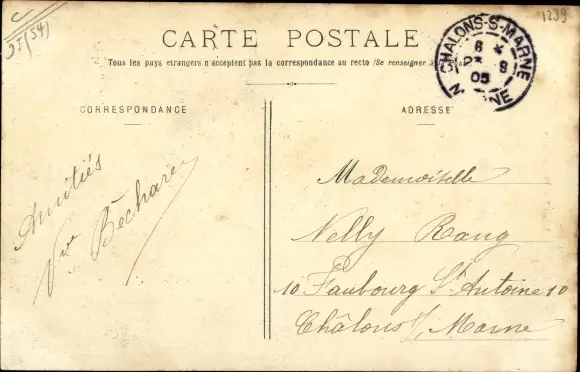 51(54)
1239
CARTE POSTALE
Tous les pays etrangers n'acceptent pas la correspondance au recto (Se renseigner à
CHALONS-S-MARNE
6
23 9
05
MARNE
CORRESPONDANCE
ADRESSE
Amitiés
Mademoiselle
Nelly Rang
10 Faubourg St Antoine 10
Châlons s/ Marne